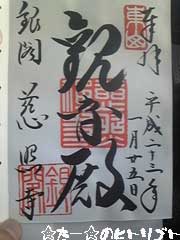 奉拝
平成二十三年
一月廿五日
観音殿
銀閣 慈照寺
☆たー☆のヒトリゴト